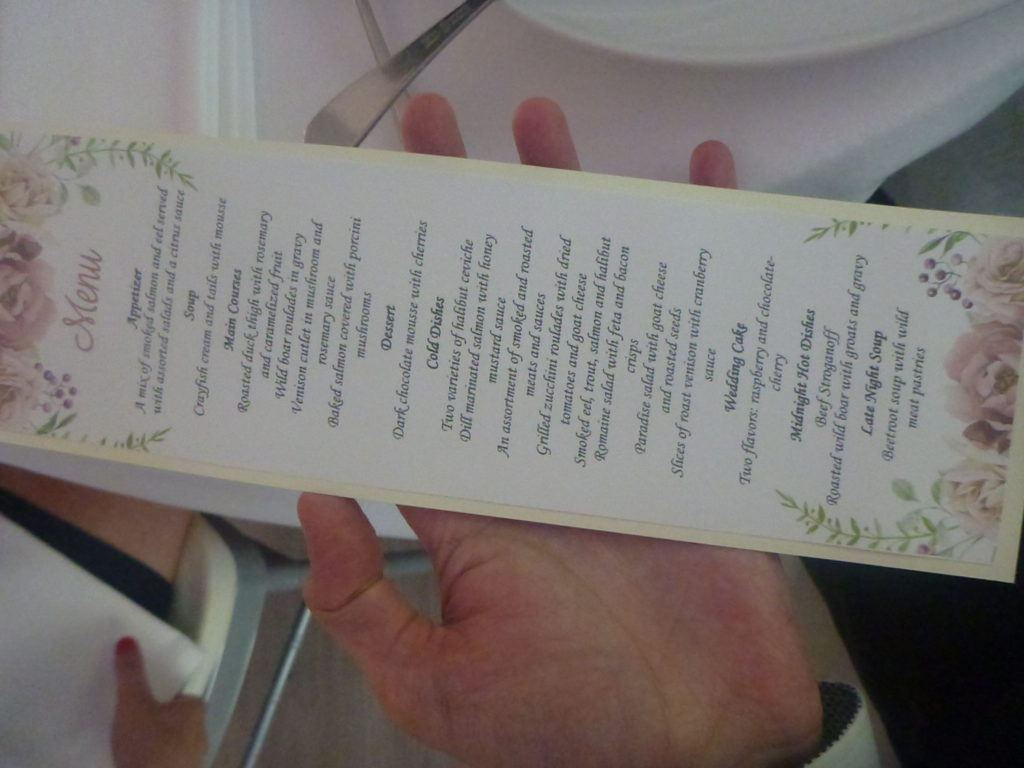 Menu
Appetizer
A mix of smoked salmon and eel served
with assorted salads and a citrus sauce
Soup
Crayfish cream and tails with mousse
Main Courses
Roasted duck thigh with rosemary
and caramelized fruit
Wild boar roulades in gravy
Venison cutlet in mushroom and
rosemary sauce
Baked salmon covered with porcini
mushrooms
Dessert
Dark chocolate mousse with cherries
Cold Dishes
Two varieties of halibut ceviche
Dill marinated salmon with honey
mustard sauce
An assortment of smoked and roasted
meats and sauces
Grilled zucchini roulades with dried
tomatoes and goat cheese
Smoked eel, trout, salmon and halibut
Romaine salad with feta and bacon
crisps
Paradise salad with goat cheese
and roasted seeds
Slices of roast venison with cranberry
sauce
Wedding Cake
Two flavors: raspberry and chocolate-
cherry
Midnight Hot Dishes
Beef Stroganoff
Roasted wild boar with groats and gravy
Late Night Soup
Beetroot soup with wild
meat pastries